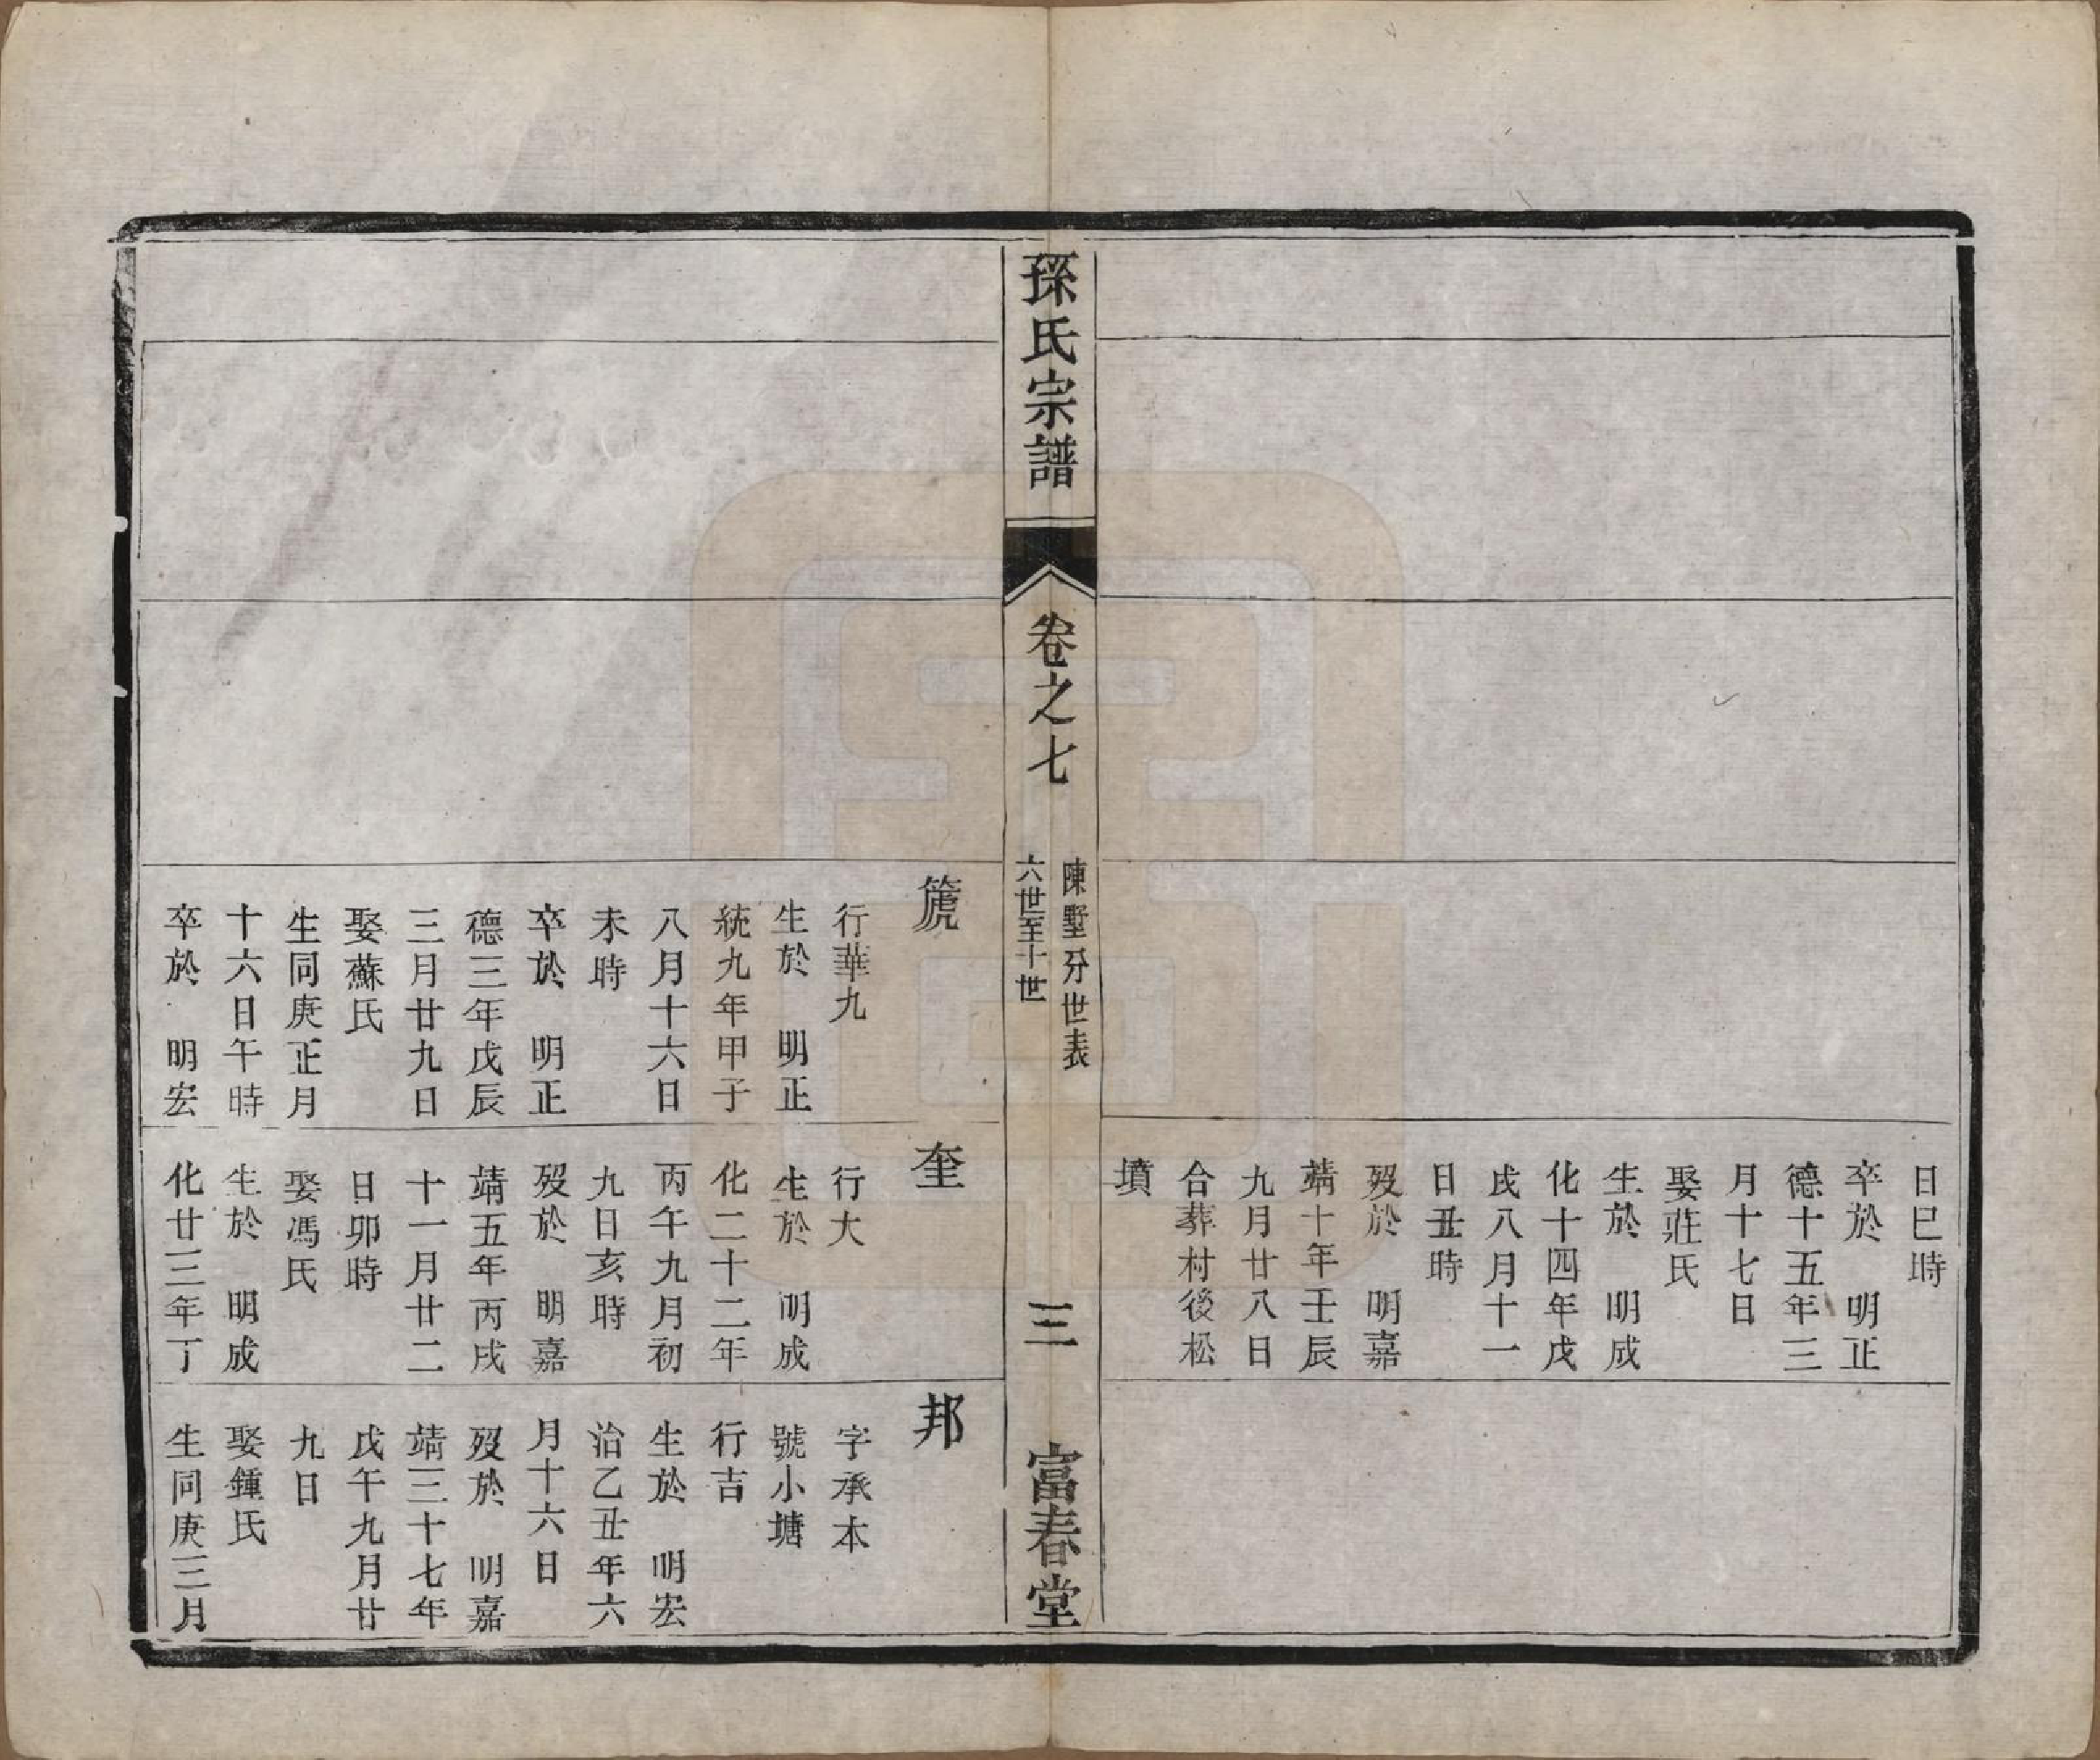 日巳時
卒於　明正
德十五年三
月十七日
娶莊氏
生於　明成
化十四年戊
戌八月十一
日丑時
歿於　明嘉
靖十年壬辰
九月廿八日
合葬村後松
墳
孫氏宗譜
卷之七
陳墅分世表
六世至十世
三
富春堂
篪
行華九
生於　明正
統九年甲子
八月十六日
未時
卒於　明正
德三年戊辰
三月廿九日
娶蘇氏
生同庚正月
十六日午時
卒於　明宏
奎
行大
生於　明成
化二十二年
丙午九月初
九日亥時
歿於　明嘉
靖五年丙戌
十一月廿二
日卯時
娶馮氏
生於　明成
化廿三年丁
邦
字承本
號小塘
行吉
生於　明宏
治乙丑年六
月十六日
歿於　明嘉
靖三十七年
戊午九月廿
九日
娶鍾氏
生同庚三月